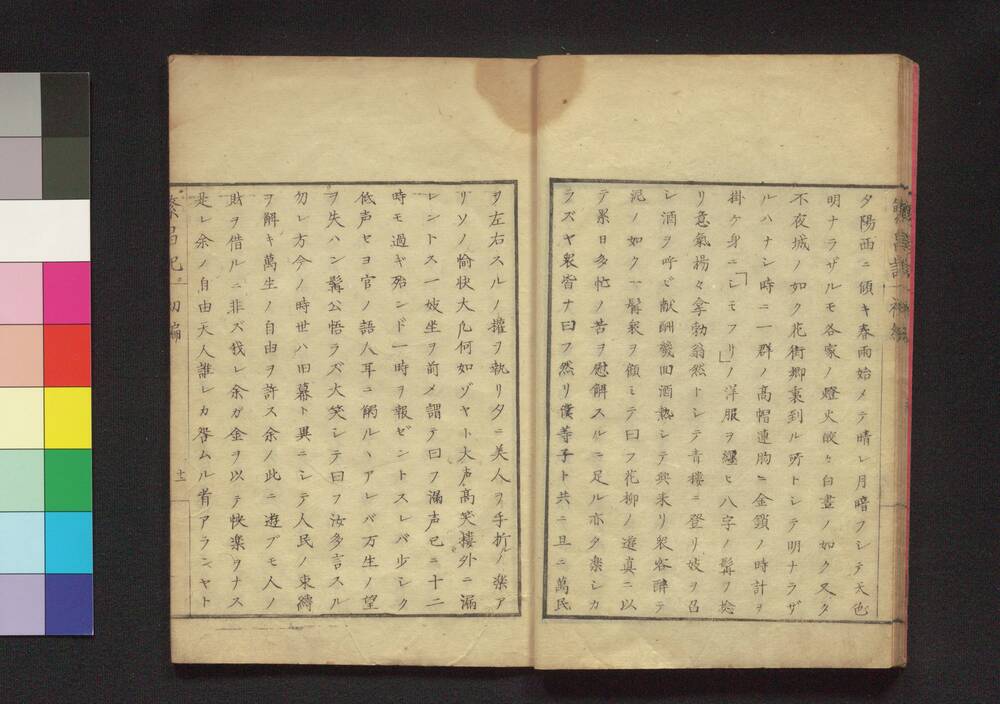 夕陽西ニ傾キ春雨始メテ晴レ月暗フシテ天色
明ナラザルモ各家ノ燈火皎々白晝ノ如ク又タ
不夜城ノ如ク花街郷裏到ル所トシテ明ナラザ
ルハナシ時ニ一群ノ高帽連胸ニ金鎖ノ時計ヲ
掛ケ身ニ「シモフリ」ノ洋服ヲ纒ヒ八字ノ髯ヲ捻
リ意氣揚々拿勃翁然トシテ青樓ニ登リ妓ヲ召
シ酒ヲ呼ビ献酬幾回酒熟シテ興来リ衆客酔テ
泥ノ如ク一髯衆ヲ顧ミテ曰フ花柳ノ遊真ニ以
テ累日多忙ノ苦ヲ慰觧スルニ足ル亦タ楽シカ
ラズヤ衆皆ナ曰フ然リ僕等子ト共ニ旦ニ萬民
ヲ左右スルノ權ヲ執リタニ美人ヲ手折ルノ楽ア
リソノ愉状大凡何如ゾヤト大声高笑楼外ニ漏
レントス一妓坐ヲ前メ謂テ曰フ漏声已ニ十二
時モ過ギ殆ンド一時ヲ報ゼントスレバ歩シク
低声セヨ官ノ語人耳ニ觸ルヽアレバ万生ノ望
ヲ失ハン髯公悟ラズ大笑シテ曰フ汝多言スル
勿レ方今ノ時世ハ旧幕ト異ニシテ人民ノ束縛
ヲ解キ萬生ノ自由ヲ許ス余ノ此ニ遊ブモ人ノ
財ヲ借ルニ非ズ我レ余ガ金ヲ以テ快楽ヲナス
是レ余ノ自由天人誰レカ咎ムル者アランヤト
繁昌記 初編
十一